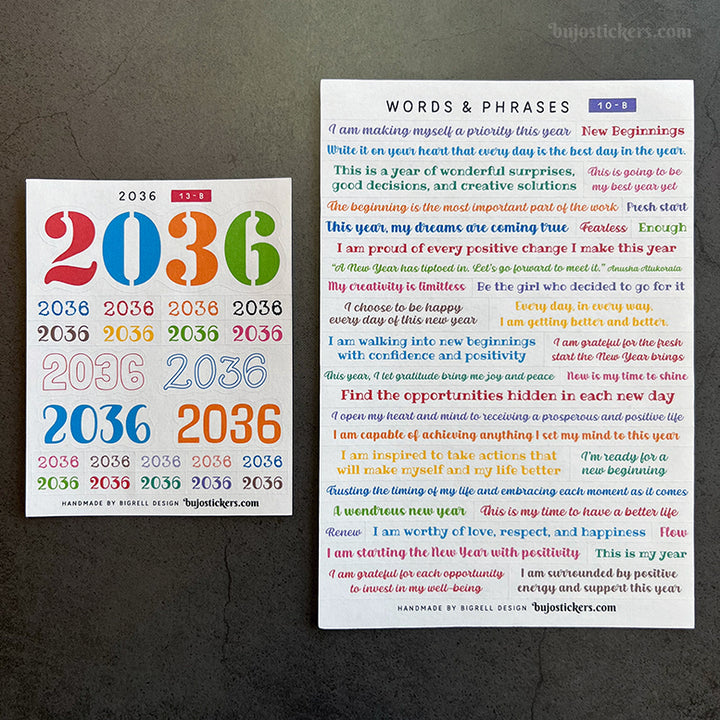 bujostickers.com
2036 13-B
2036
2036 2036 2036 2036
2036 2036 2036 2036
2036 2036
2036 2036
2036 2036 2036 2036 2036
2036 2036 2036 2036 2036
HANDMADE BY BIGRELL DESIGN bujostickers.com
WORDS & PHRASES 10-B
I am making myself a priority this year New Beginnings
Write it on your heart that every day is the best day in the year.
This is a year of wonderful surprises,
good decisions, and creative solutions
This is going to be
my best year yet
The beginning is the most important part of the work Fresh start
This year, my dreams are coming true Fearless Enough
I am proud of every positive change I make this year
“A New Year has tiptoed in. Let's go forward to meet it.” Anusha Atukorala
My creativity is limitless Be the girl who decided to go for it
I choose to be happy
every day of this new year
Every day, in every way,
I am getting better and better.
I am walking into new beginnings
with confidence and positivity
I am grateful for the fresh
start the New Year brings
This year, I let gratitude bring me joy and peace Now is my time to shine
Find the opportunities hidden in each new day
I open my heart and mind to receiving a prosperous and positive life
I am capable of achieving anything I set my mind to this year
I am inspired to take actions that
will make myself and my life better
I'm ready for a
new beginning
Trusting the timing of my life and embracing each moment as it comes
A wondrous new year This is my time to have a better life
Renew I am worthy of love, respect, and happiness Flow
I am starting the New Year with positivity This is my year
I am grateful for each opportunity
to invest in my well-being
I am surrounded by positive
energy and support this year
HANDMADE BY BIGRELL DESIGN bujostickers.com